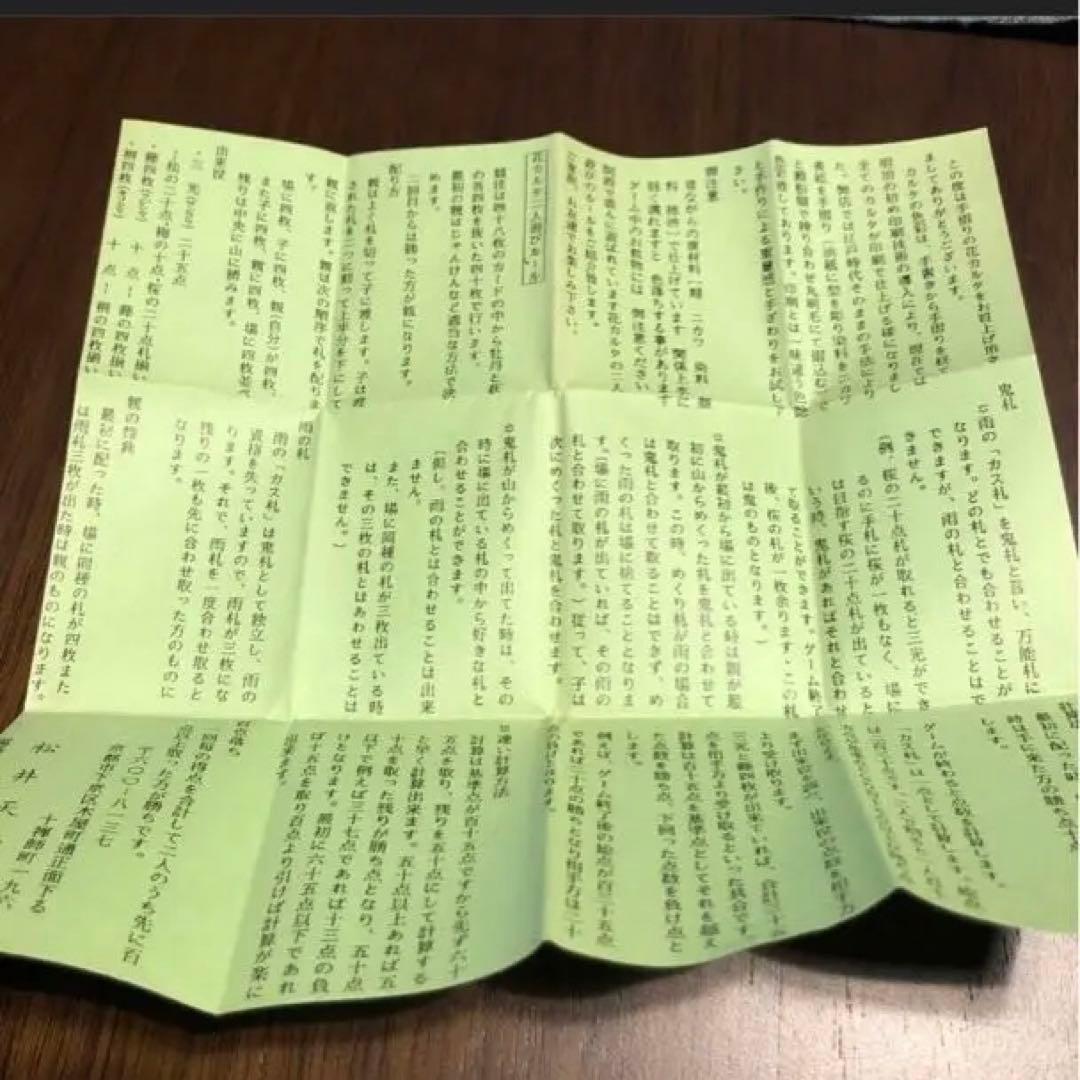 この度は手摺りの花カルタをお買上げ頂き
ましてありがとうございます。
カルタの色彩は、手書きから手摺りを経て
明治の初め印刷技術の導入により、現在では
全てのカルタが印刷で仕上げる様になりまし
た。弊店では江戸時代そのままの手法により
と手作りによる重量感と手ざわりをお試し下
さい。
御注意
昔ながらの原材料
ゲーム中のお飲物には 御注意ください
関西で盛んに遊ばれています花カルタの二人
ご家庭、お友達でお楽しみ下さい。
花カルタ二人遊びルール
競技は四十八枚のカードの中から牡丹と萩
の各四枚を抜いた四十枚で行います。
最初の親はじゃんけんなど適当な方法で決
めます。
二回目からは勝った方が親になります。
配り方
親はよく札を切って子に渡します。子は渡
された札を二つに割って上半分を下にして
親に戻します。親は次の順序で札を配りま
す。
場に四枚、子に四枚、親(自分)が四枚、
また子に四枚、親に四枚、場に四枚並べ
残りは中央に山に積みます。
出来役
・三 光 二十五点
松の二十点札梅の十点桜の二十点札揃い
・藤四枚 十 点 藤の四枚揃い
・桐四枚 十 点 桐の四枚揃い
鬼札
雨の「カス札」を鬼札と言い、万能札に
なります。どの札とでも合わせることが
できますが、雨の札と合わせることはで
きません。
(例、桜の二十点札が取れると三光ができ
るのに手札に桜が一枚もなく、場に
は目指す桜の二十点札が出ていると
いう時、鬼札があればそれと合わせ
て取ることができます。ゲーム終了
後、桜の札が一枚余ります・この札
は鬼のものとなります。)
鬼札が最初から場に出ている時は親が最
初に山からめくった札を鬼札と合わせて
取ります。この時、めくり札が雨の場合
は鬼札と合わせて取ることはできず、め
くった雨の札は場に捨てることとなりま
す。(場に雨の札が出ていれば、その雨の
札と合わせて取ります。)従って、子は
次にめくった札と鬼札を合わせます。
鬼札が山からめくって出てた時は、その
時に場に出ている札の中から好きな札と
合わせることができます。
(但し、雨の札とは合わせることは出来
ません。
また、場に同種の札が三枚出ている時
は、その三枚の札とはあわせることは
できません。)
雨の札
雨の「カス札」は鬼札として独立し、雨の
資格を失っていますので、雨札が三枚にな
ります。それで、雨札を一度合わせ取ると
残りの一枚も先に合わせ取った方のものに
なります。
親の特典
最初に配った時、場に同種の札が四枚また
は雨札三枚が出た時は親のものになります。
最初に配った時
時は手に来た方の勝ち点
します。
ゲームが終わると点数を計算します。
より受け取ります。
三光と藤四枚が出来ていれば、合計三十五
点を相手方より受け取るといった具合です
計算は百十五点を基準点としてそれを越え
た点数を勝ち点、下回った点数を負け点と
します。
例えば、ゲーム終了後の総点が百三十五点
であれば二十点の勝ちとなり相手方は二十
点の負けとなります。
速い計算方法
計算は基準点が百十五点ですから先ず六十
五点を取り、残りを五十点にして計算する
と早く計算出来ます。五十点以上あれば五
十点を取った残りが勝ち点となり、五十点
以下で例えば三十七点であれば十三点の負
けとなります。最初に六十五点以下であれ
ば十五点を取り百点より引けば計算が楽に
出来ます。
百点落ち
回毎の得点を合計して二人のうち先に百
点以上取った方が勝ちです。
〒六〇〇-八一三七
京都市下京区木屋町通正面下る
十禅師町一九六
松 井 天